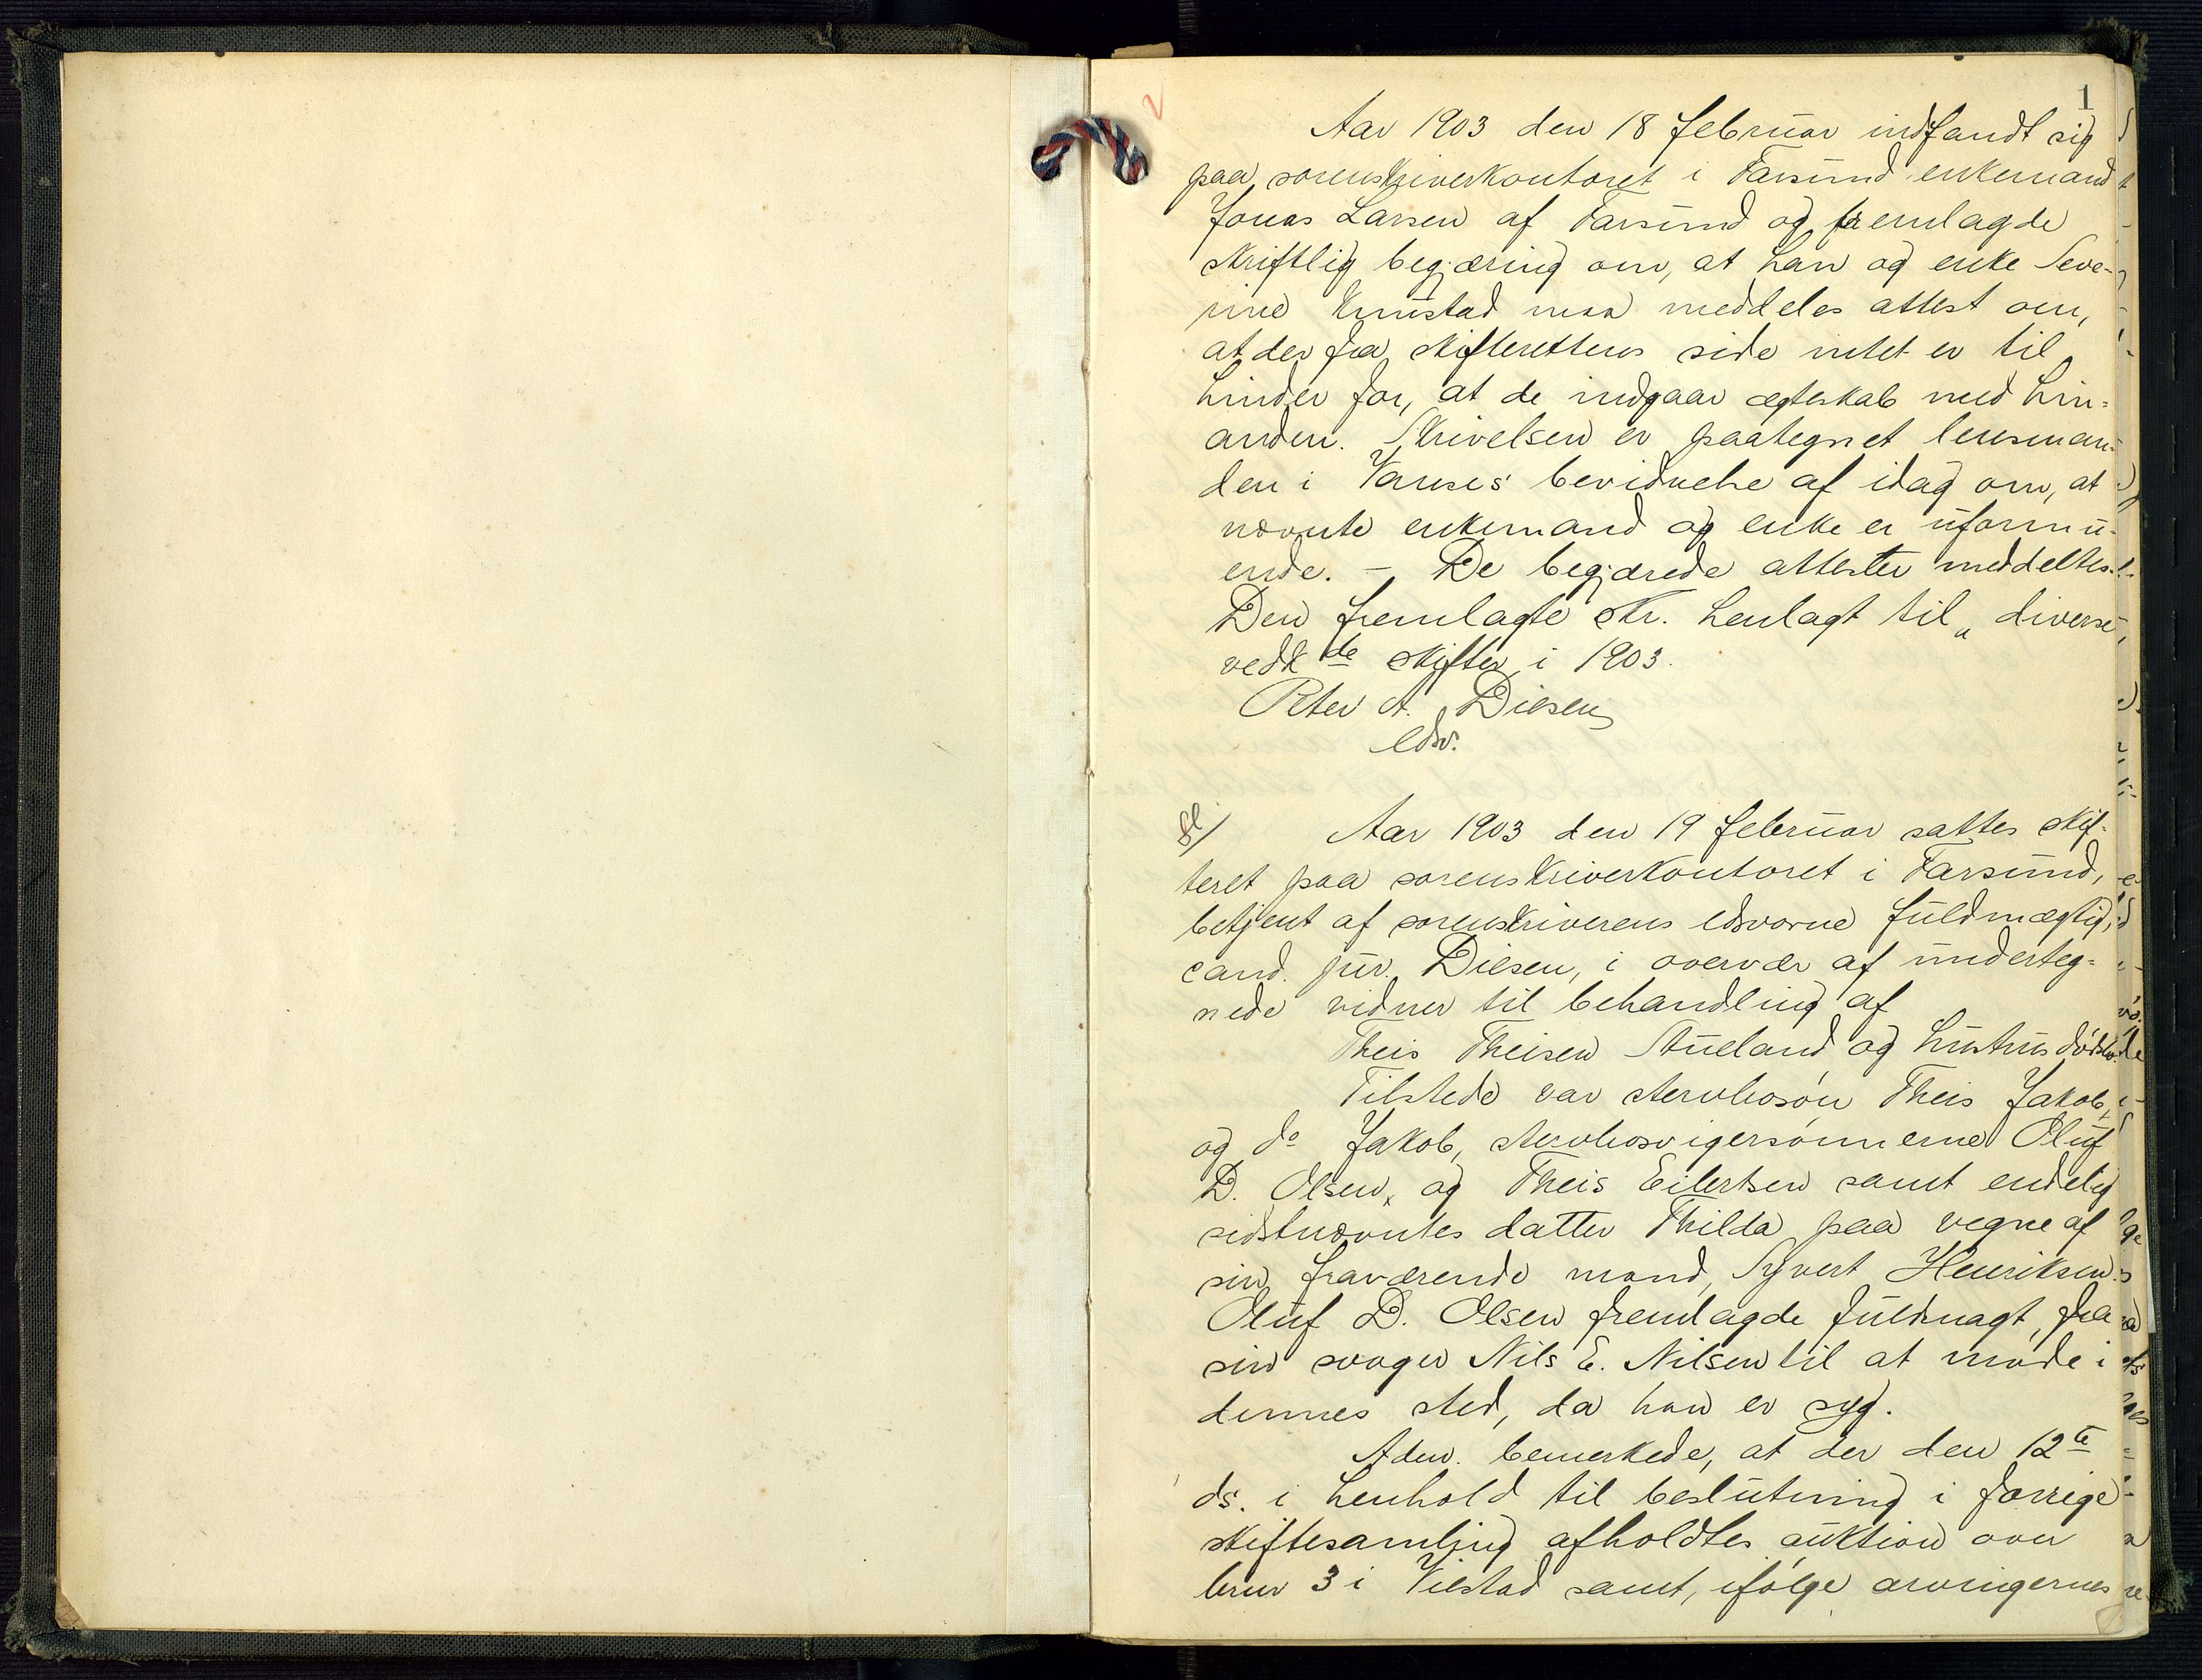 1
Aar 1903 den 18 februar indfandt sig
paa sorenskriverkontoret i Farsund enkemand
Jonas Larsen af Farsund og fremlagde
skriftlig begjæring om, at han og enke Seve-
rine Kunstad maa meddeles attest om,
at der fra skifterettens side intet er til
hinder for, at de indgaar ægteskab med hin-
anden. Skrivelsen er paategnet lensman-
den i Vanses bevidnelse af idag om, at
nævnte enkemand og enke er uformu-
ende. – De begjærede attester meddeltes.
Den fremlagte skr. henlagt til „diverse
vedk de skifter i 1903.
Peter A. Diesen
edsv.
Aar 1903 den 19 februar sattes skif-
teret paa sorenskriverkontoret i Farsund,
betjent af sorenskriverens edsvorne fuldmægtig,
cand. jur. Diesen, i overvær af underteg-
nede vidner til behandling af
Theis Theisen Stueland og hustrus dødsbo.
Tilstede var stervbosøn Theis Jakob,
og do Jakob, stervbosvigersønnerne Oluf
D. Olsen, og Theis Eilertsen samt endelig
sidstnævntes datter Thilda paa vegne af
sin fraværende mand, Syvert Henriksen.
Oluf D. Olsen fremlagde fuldmagt, fra
sin svoger Nils E. Nilsen til at møde i
dennes sted, da han er syg.
Adm. bemerkede, at der den 12te
ds. i henhold til beslutning i forrige
skiftesamling afholdtes auktion over
brnr 3 i Vilstad samt, ifølge arvingernes